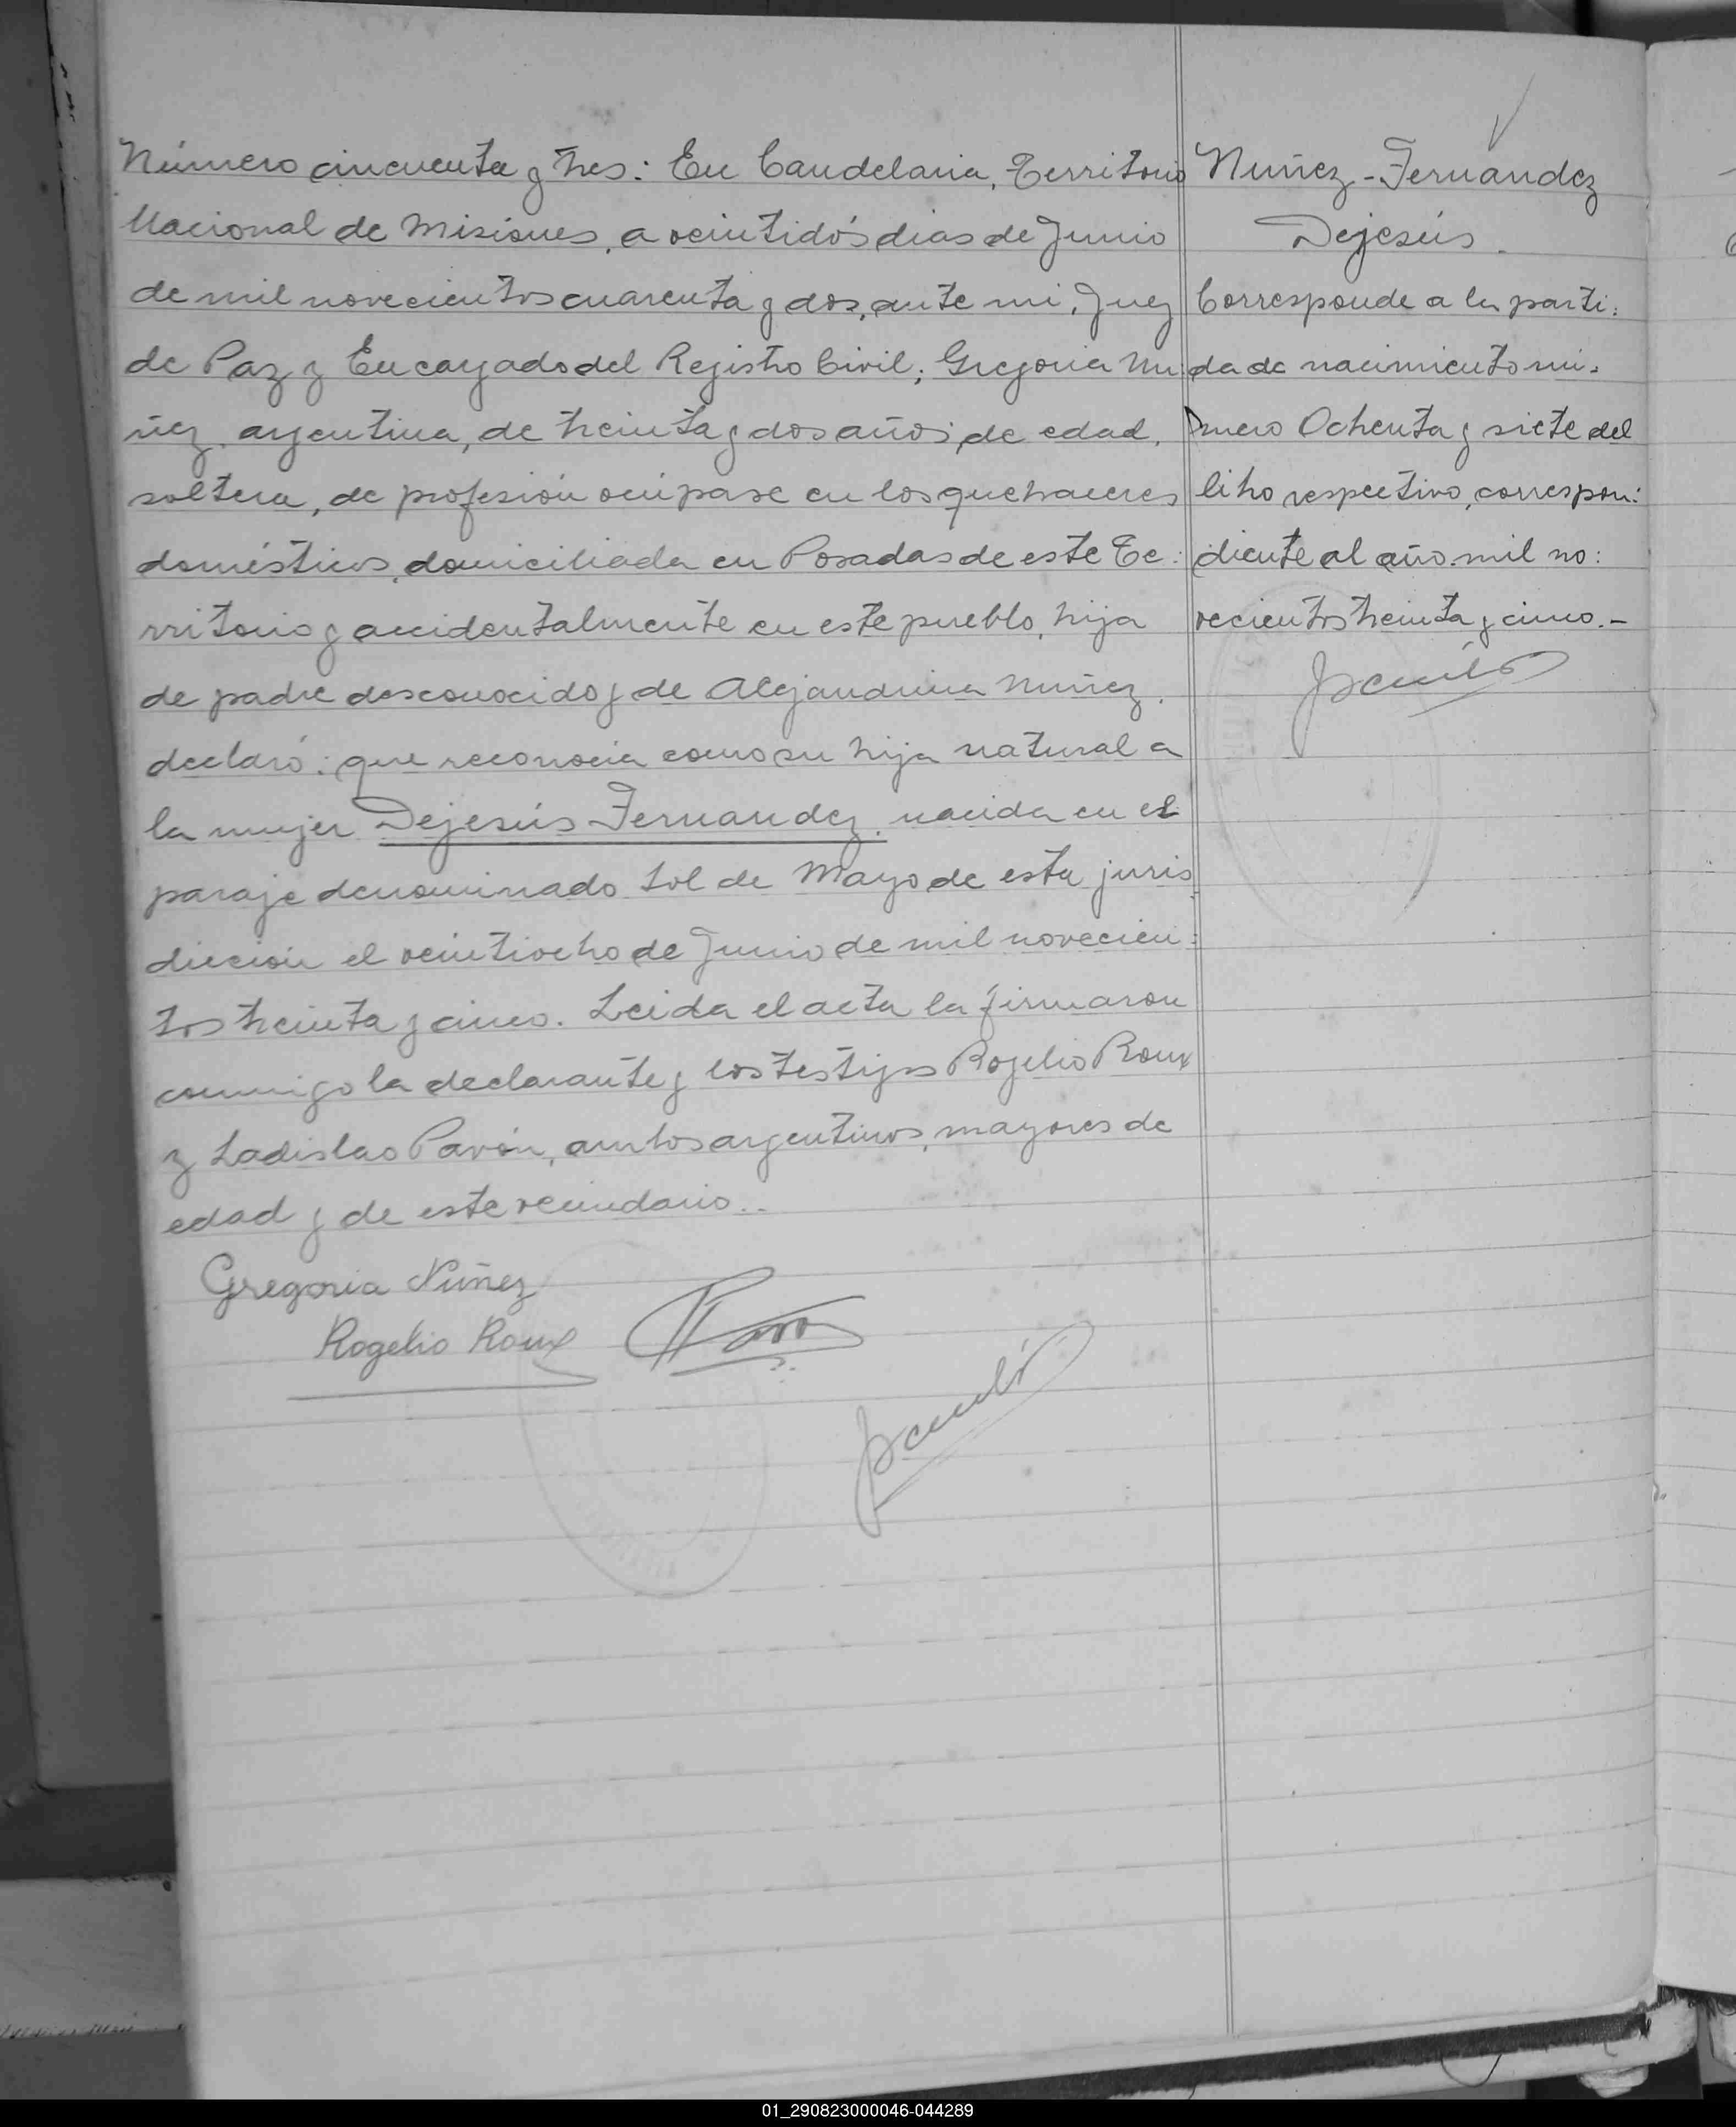 Número cincuenta y tres: En Candelaria, Territorio
Nacional de Misiones, a veintidós dias de Junio
de mil novecientos cuarenta y dos, ante mi, Juez
de Paz y Encargado del Registro Civil; Gregoria Nu:
ñez, argentina, de treinta y dos años de edad,
soltera, de profesión ocúpase en los quehaceres
domésticos, domiciliada en Posadas de este Te:
rritorio y accidentalmente en este pueblo, hija
de padre desconocido y de Alejandrina Nuñez,
declaró: que reconocia como su hija natural a
la mujer Dejesús Fernandez, nacida en el
paraje denominado Sol de Mayo de esta juris
dicción el veintiocho de Junio de mil novecien:
tos treinta y cinco. Leida el acta la firmaron
conmigo la declarante y los testigos Rogelio Roux
y Ladislao Pavón, ambos argentinos, mayores de
edad y de este vecindario..
Gregoria Núñez
Rogelio Roux
Nuñez-Fernandez
Dejesús.
Corresponde a la parti:
da de nacimiento nú:
mero Ochenta y siete del
libro respectivo, correspon:
diente al año mil no:
vecientos treinta y cinco.-
01_290823000046-044289